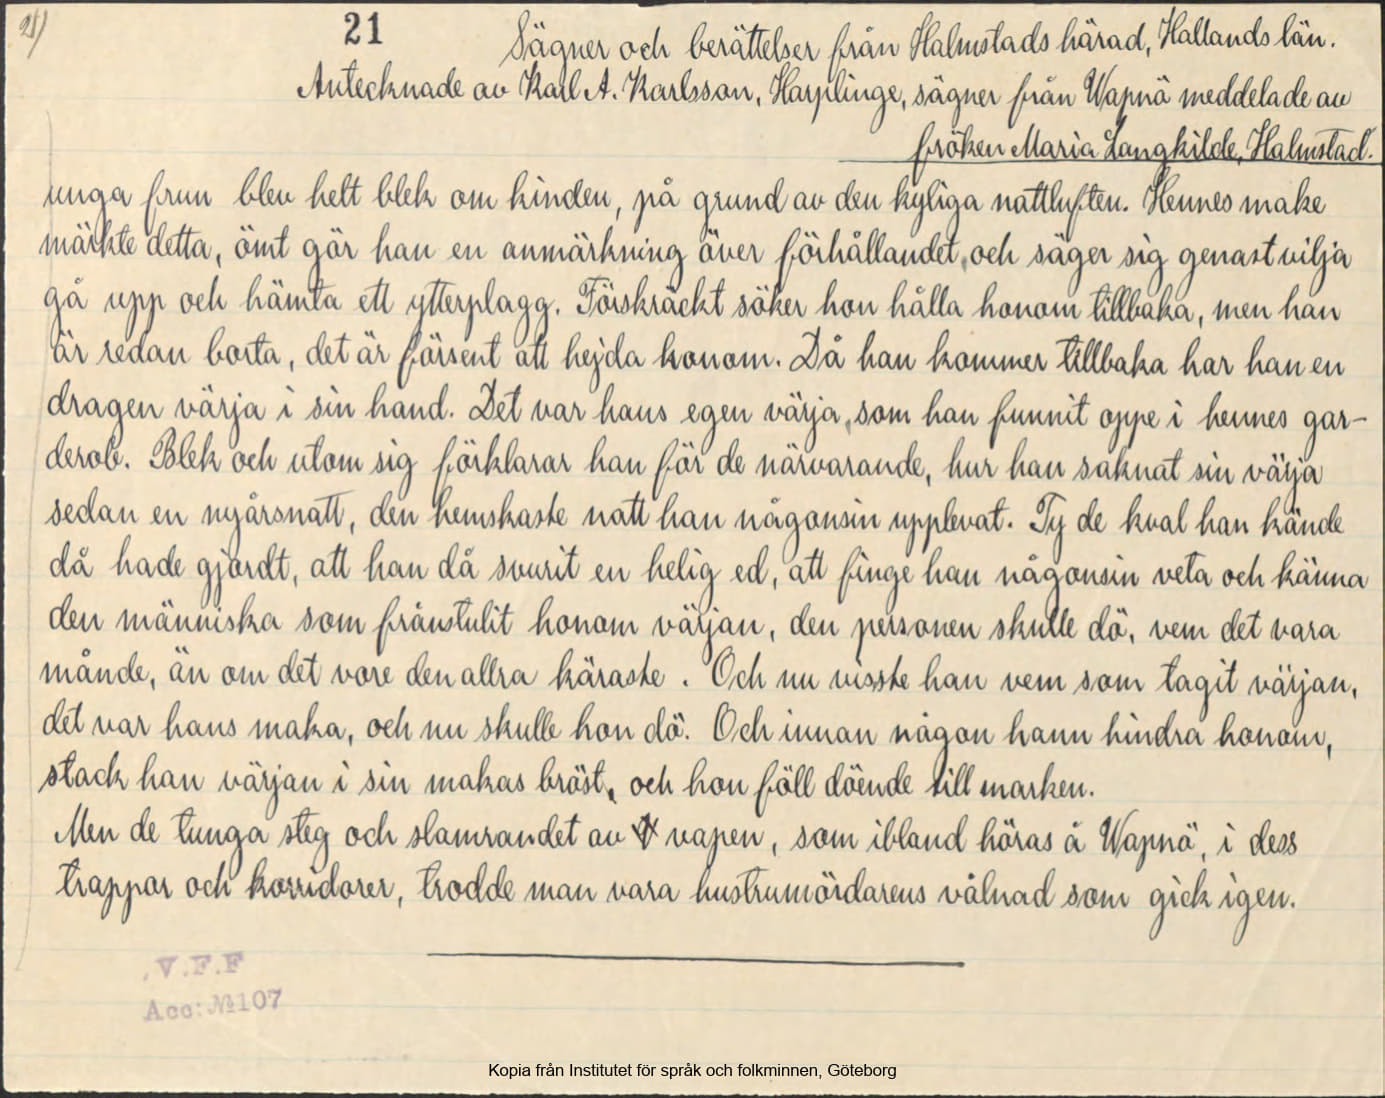 28)
21
Sägner och berättelser från Halmstads härad, Hallands län.
Antecknade av Karl A. Karlsson, Harplinge, sägner från Wapnö meddelade av
fröken Maria Langkilde, Halmstad.
unga frun blev helt blek om kinden, på grund av den kyliga nattluften. Hennes make
märkte detta, ömt gör han en anmärkning över förhållandet, och säger sig genast vilja
gå upp och hämta ett ytterplagg. Förskräckt söker hon hålla honom tillbaka, men han
är redan borta, det är försent att hejda honom. Då han kommer tillbaka har han en
dragen värja i sin hand. Det var hans egen värja, som han funnit oppe i hennes gar-
derob. Blek och utom sig förklarar han för de närvarande, hur han saknat sin värja
sedan en nyårsnatt, den hemskaste natt han någonsin upplevat. Ty de kval han kände
då hade gjordt, att han då svurit en helig ed, att finge han någonsin veta och känna
den människa som frånstulit honom värjan, den personen skulle dö, vem det vara
månde, än om det vore den allra käraste. Och nu visste han vem som tagit värjan,
det var hans maka, och nu skulle hon dö. Och innan någon hann hindra honom,
stack han värjan i sin makas bröst, och hon föll döende till marken.
Men de tunga steg och slamrandet av vapen, som ibland höras å Wapnö, i dess
trappor och korridorer, trodde man vara hustrumördarens vålnad som gick igen.
.V.F.F
Acc: № 107
Kopia från Institutet för språk och folkminnen, Göteborg